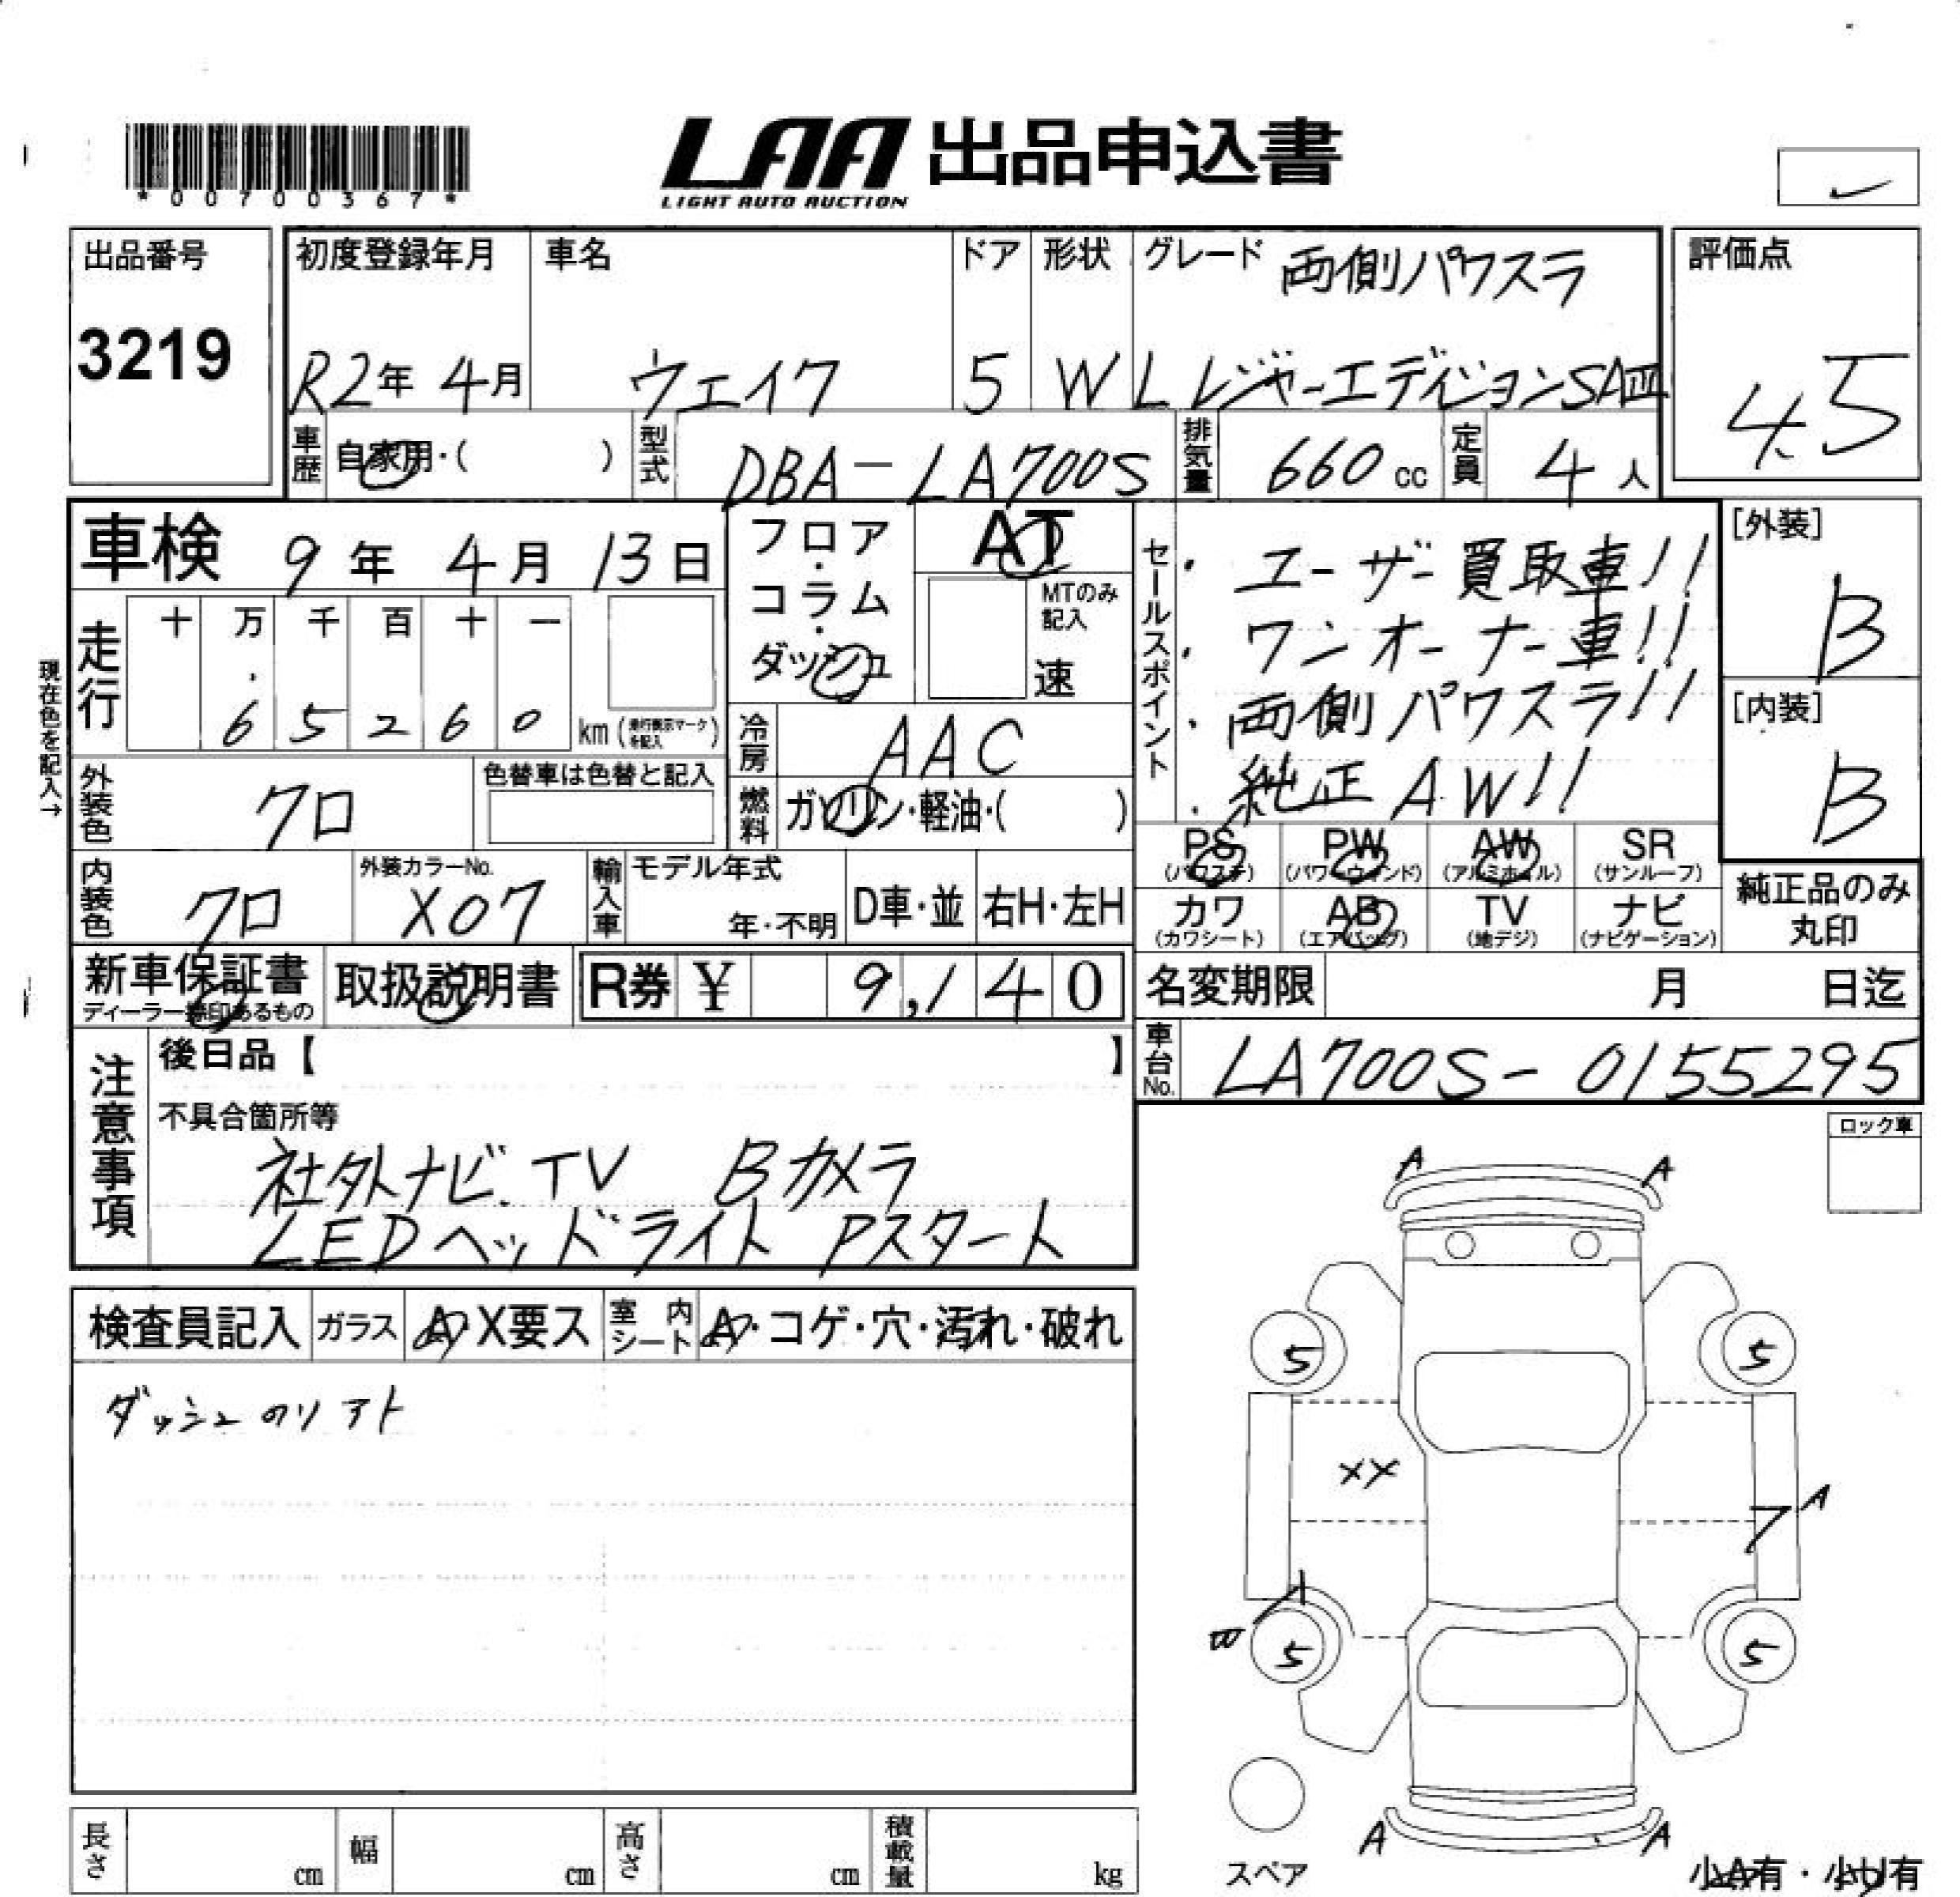 *00700367*
LAA 出品申込書
LIGHT AUTO AUCTION
出品番号
3219
初度登録年月
R2年 4月
車名
ウェイク
ドア
5
形状
W
グレード 両側パワスラ
L レジャーエディションSAⅢ
評価点
4.5
車歴
自家用・( )
型式
DBA-LA700S
排気量
660cc
定員
4人
車検 9年 4月 13日
走行
十 万 千 百 十 一
6 5 2 6 0 km(走行表示マークを記入)
現在色を記入→
フロア・コラム・ダッシュ
AT
MTのみ記入
速
冷房
AAC
燃料
ガソリン・軽油・( )
外装色
クロ
色替車は色替と記入
内装色
クロ
外装カラーNo.
X07
輸入車
モデル年式
年・不明
D車・並
右H・左H
セールスポイント
・ユーザー買取車!!
・ワンオーナー車!!
・両側パワスラ!!
・純正AW!!
[外装]
B
[内装]
B
PS PW AW SR
(パワステ) (パワーウィンド) (アルミホイル) (サンルーフ)
カワ AB TV ナビ
(カワシート) (エアバッグ) (地デジ) (ナビゲーション)
純正品のみ
丸印
新車保証書
ディーラー捺印あるもの
取扱説明書
R券 ¥ 9,140
名変期限 月 日迄
車台No.
LA700S-0155295
注意事項
後日品【 】
不具合箇所等
社外ナビ.TV Bカメラ
LEDヘッドライト Pスタート
ロック車
検査員記入 ガラス A・X要ス 室内シート A・コゲ・穴・汚れ・破れ
ダッシュのリアト
A A
5 5
XX
A
5 5
A A
スペア
小A有・小U有
長さ cm 幅 cm 高さ cm 積載量 kg